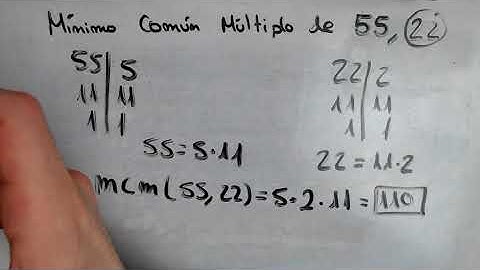 Mínimo Común Múltiplo de 55, 22
55 | 5
11 | 11
1 | 1
55 = 5·11
22 | 2
11 | 11
1 | 1
22 = 11·2
mcm(55, 22) = 5·2·11 = 110